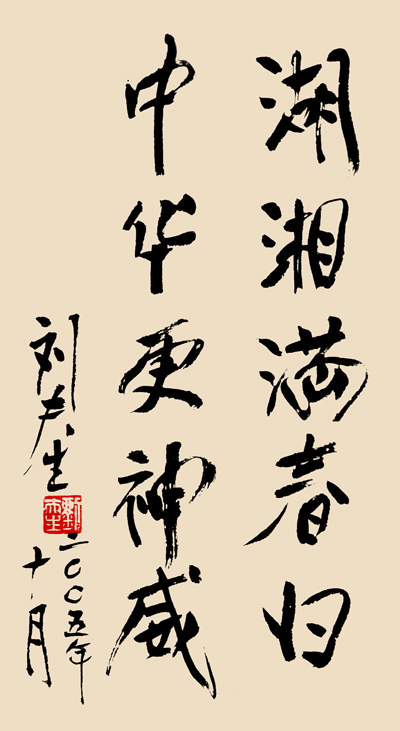 湖湘满春日
中华更神威
刘夫生
二〇〇五年
十月